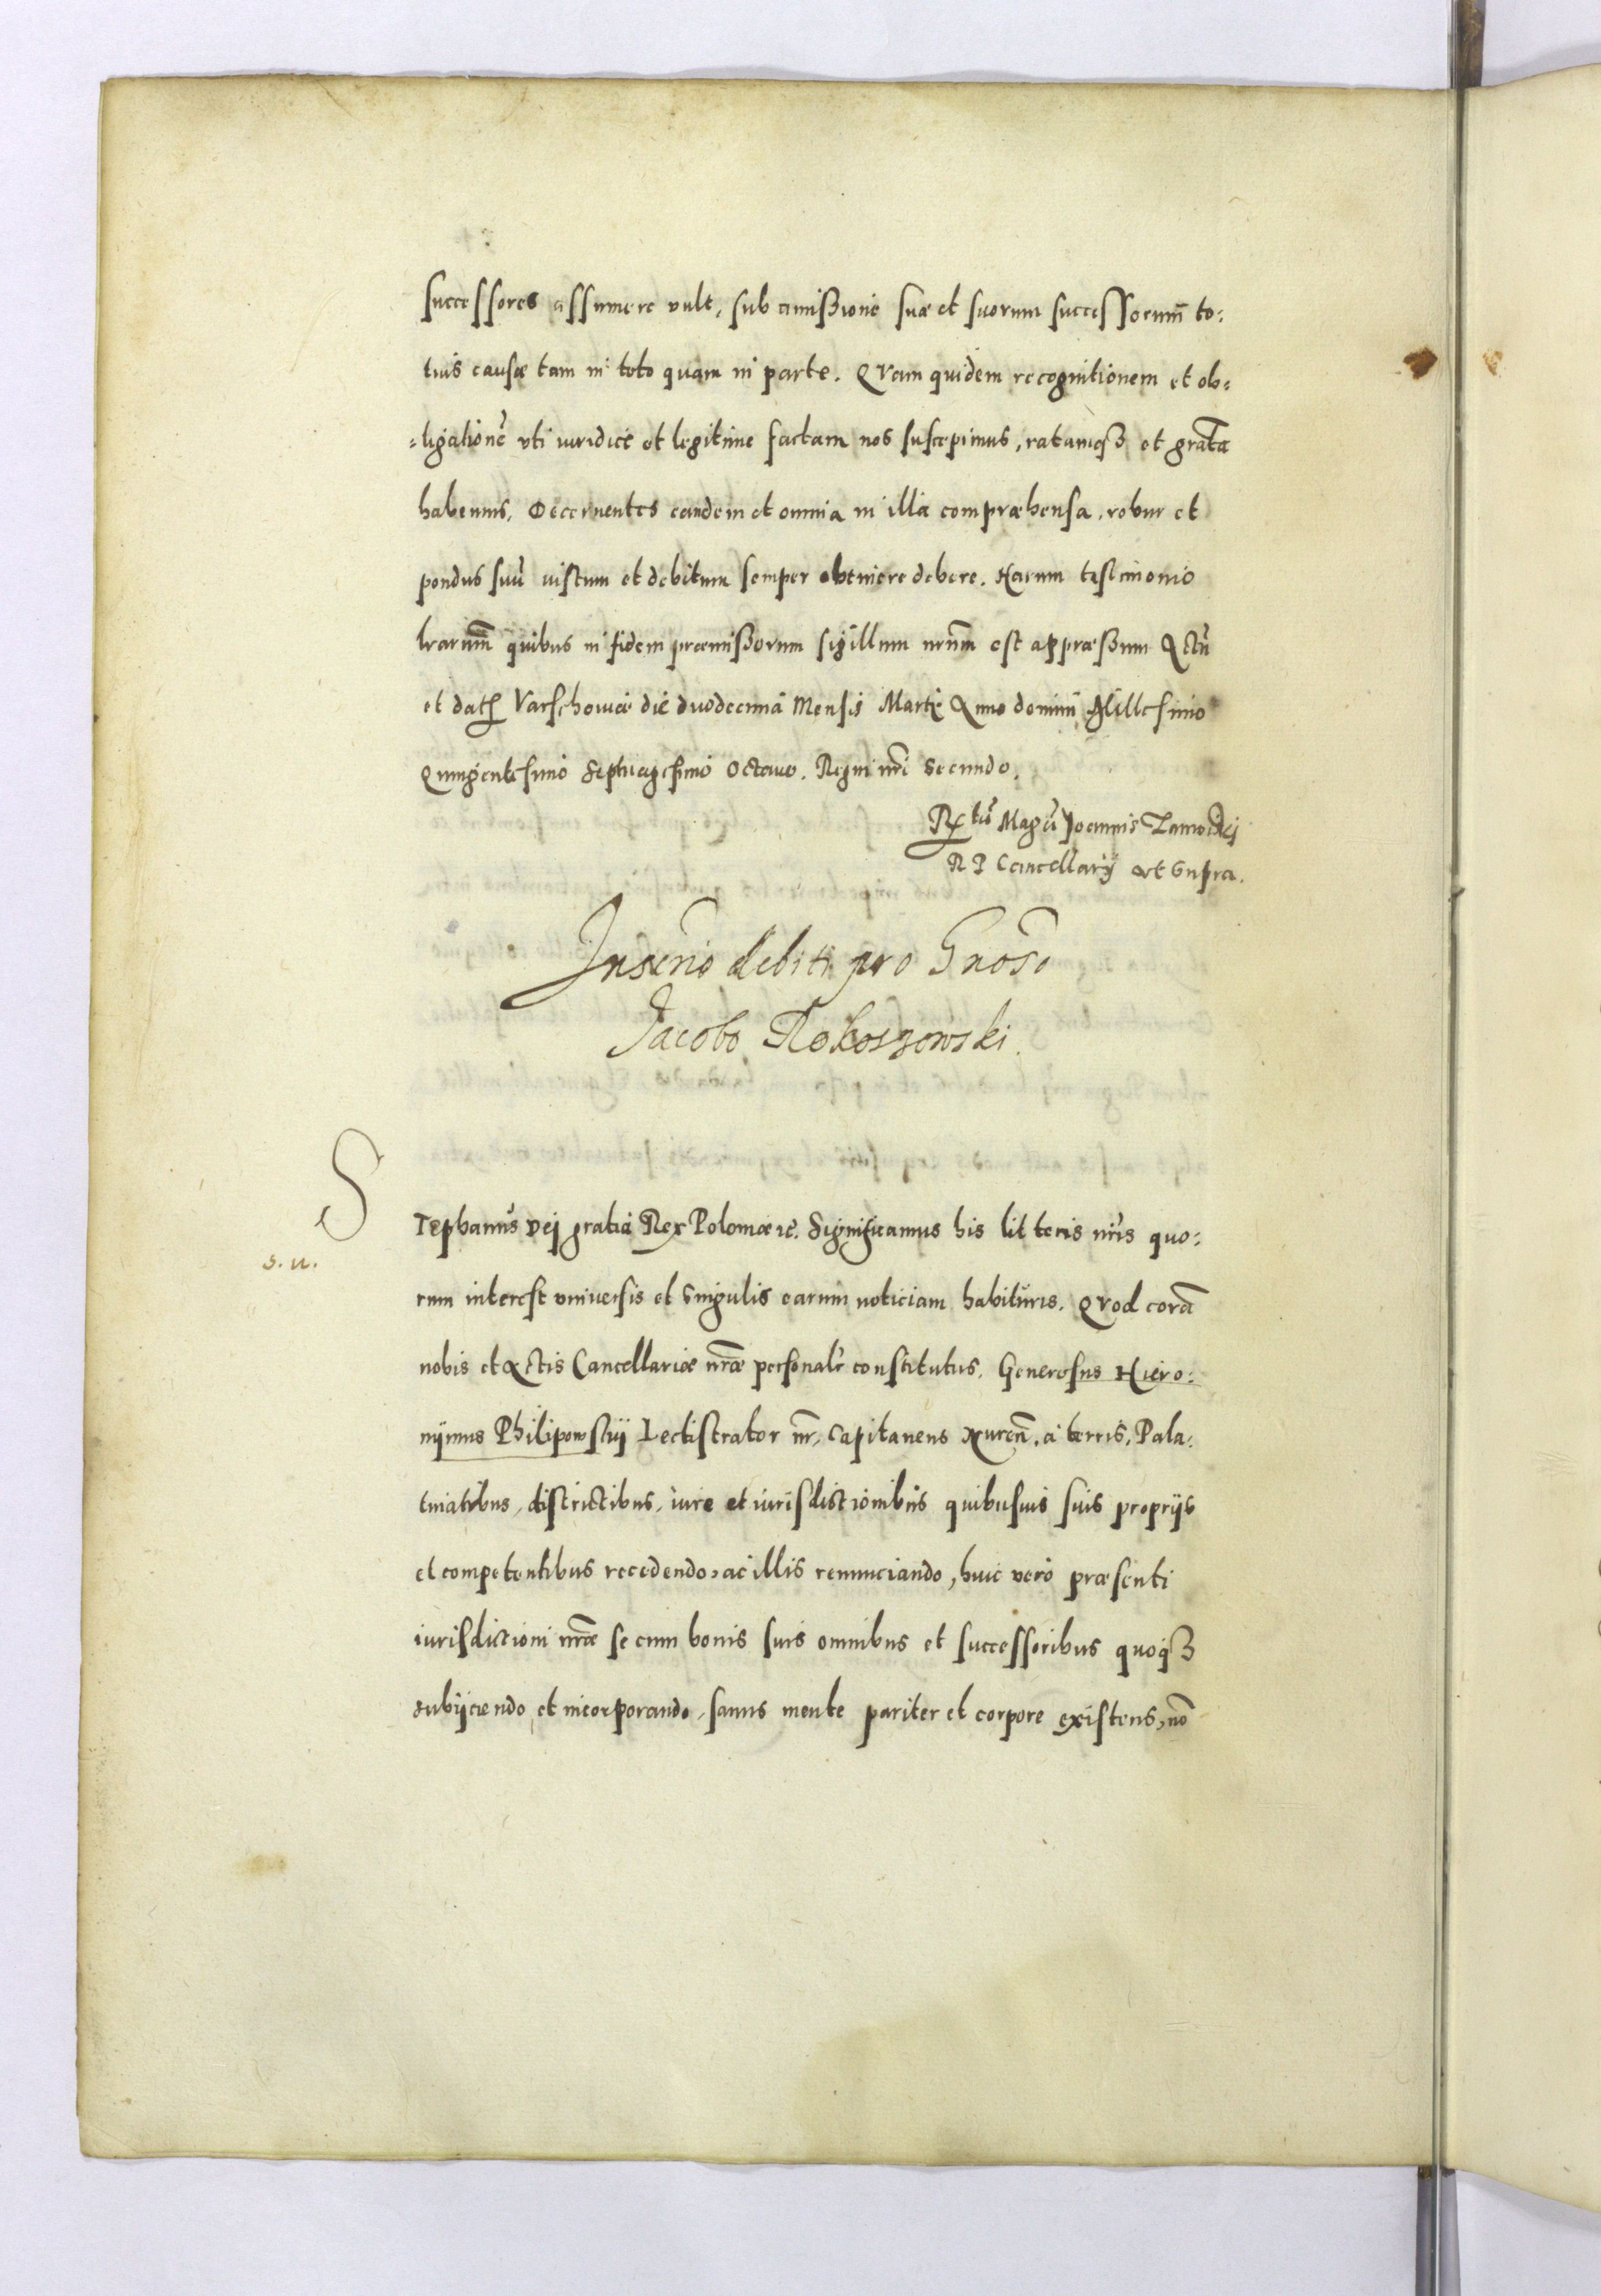 successores assumere vult, sub amissione suae et suorum successorum̃ to:
tius causae tam in toto quam in parte. Quam quidem recognitionem et ob=
=ligationẽ uti iuridice et legitime factam nos suscepimus, ratamqȝ et gratã
habemus. Decernentes eandem et omnia in illa compraehensa, robur et
pondus suũ iustum et debitum semper obtinere debere. Harum testimonio
lrarum̃ quibus in fidem praemissorum sigillum nrũm est appraessum Actũ
et dat Varschoviae die duodecima Mensis Martij Anno domini Millesimo
Quingentesimo Septuagesimo Octavo. Regni nrĩ Secundo.
Magci Joannis Zamoiskij
R P Cancellarij ut supra.
Inscriõ debiti pro Gnoso
Jacobo Rokoszowski.
S
Tephanus Dei gratia Rex Poloniae ꝛc. Significamus his litteris nrĩs quo:
s. u.
rum interest universis et singulis earum noticiam habituris. Quod corã
nobis et Actis Cancellariae nrãe personalr̃ constitutus. Generosus Hiero:
nijmus Philipowskij Lectistrator nr̃, Capitaneus Xurceñ. a terris, Pala:
tinatibus, districtibus, iure et iurisdictionibus quibusuis suis proprijs
et competentibus recedendo, ac illis renunciando, huic vero praesenti
iurisdictioni nrãe se cum bonis suis omnibus et successoribus quoqȝ
subijciendo et incorporando, sanus mente pariter et corpore existens, nõ